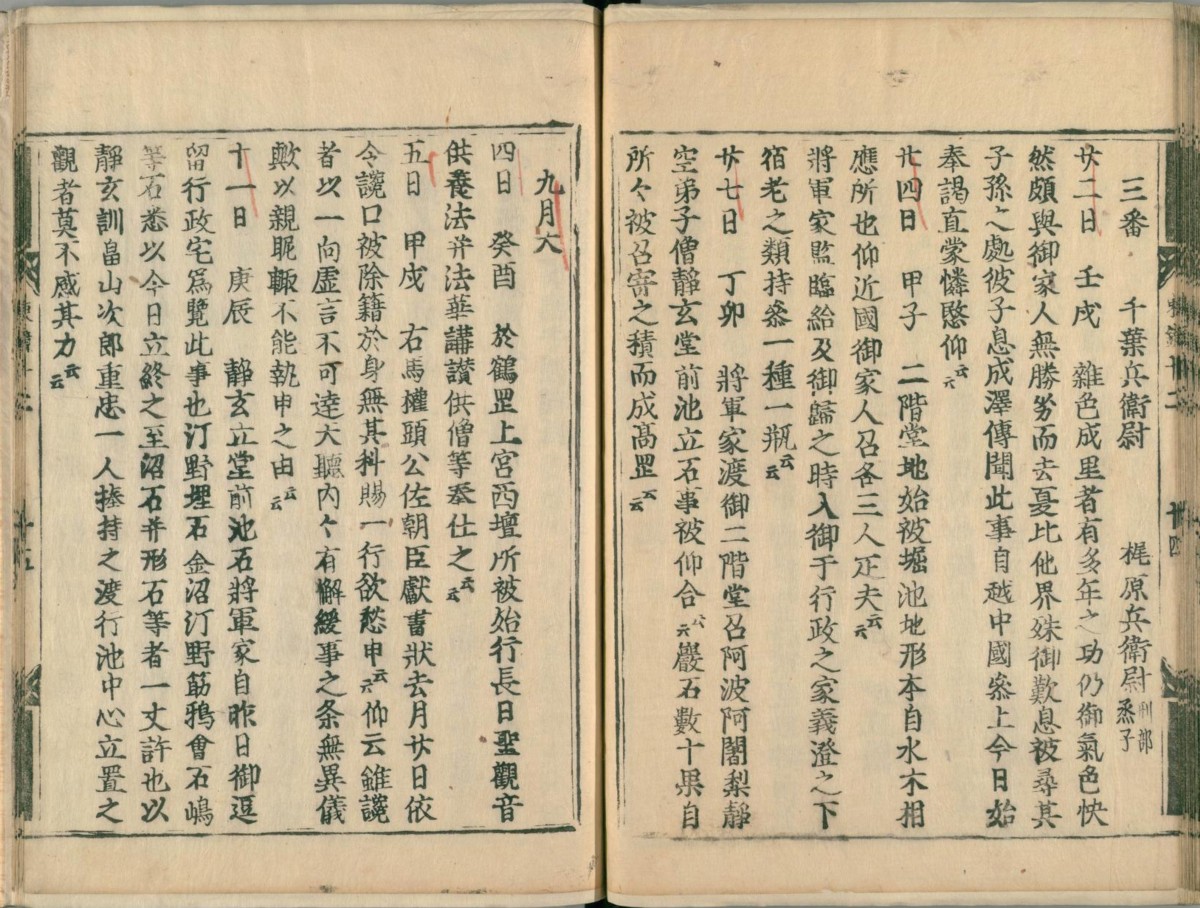 三番　千葉兵衛尉　梶原兵衛尉 刑部烝子
廿二日　壬戌　雜色成里者有多年之功仍御氣色快
然頗與御家人無勝劣而去夏比他界殊御歎息被尋其
子孫之處彼子息成澤傳聞此事自越中國參上今日始
奉謁直蒙憐愍仰云云
廿四日　甲子　二階堂地始被堀池地形本自水木相
應所也仰近國御家人召各三人疋夫云云
將軍家監臨給及御歸之時入御于行政之家義澄之下
宿老之類持參一種一瓶云云
廿七日　丁卯　將軍家渡御二階堂召阿波阿闍梨靜
空弟子僧靜玄堂前池立石事被仰合云云巖石數十果自
所々被召寄之積而成高罡云云
九月大
四日　癸酉　於鶴罡上宮西壇所被始行長日聖觀音
供養法并法華講讚供僧等奉仕之云云
五日　甲戌　右馬權頭公佐朝臣獻書狀去月廿日依
令讒口被除籍於身無其科賜一行欲愁申云云仰云雖讒
者以一向虛言不可達大聽內々有懈緩事之条無異儀
歟以親昵輙不能執申之由云云
十一日　庚辰　靜玄立堂前池石將軍家自昨日御逗
留行政宅爲覽此事也汀野埋石金沼汀野筋鵶會石嶋
等石悉以今日立終之至沼石并形石等者一丈許也以
靜玄訓畠山次郎重忠一人捧持之渡行池中心立置之
觀者莫不感其力云云